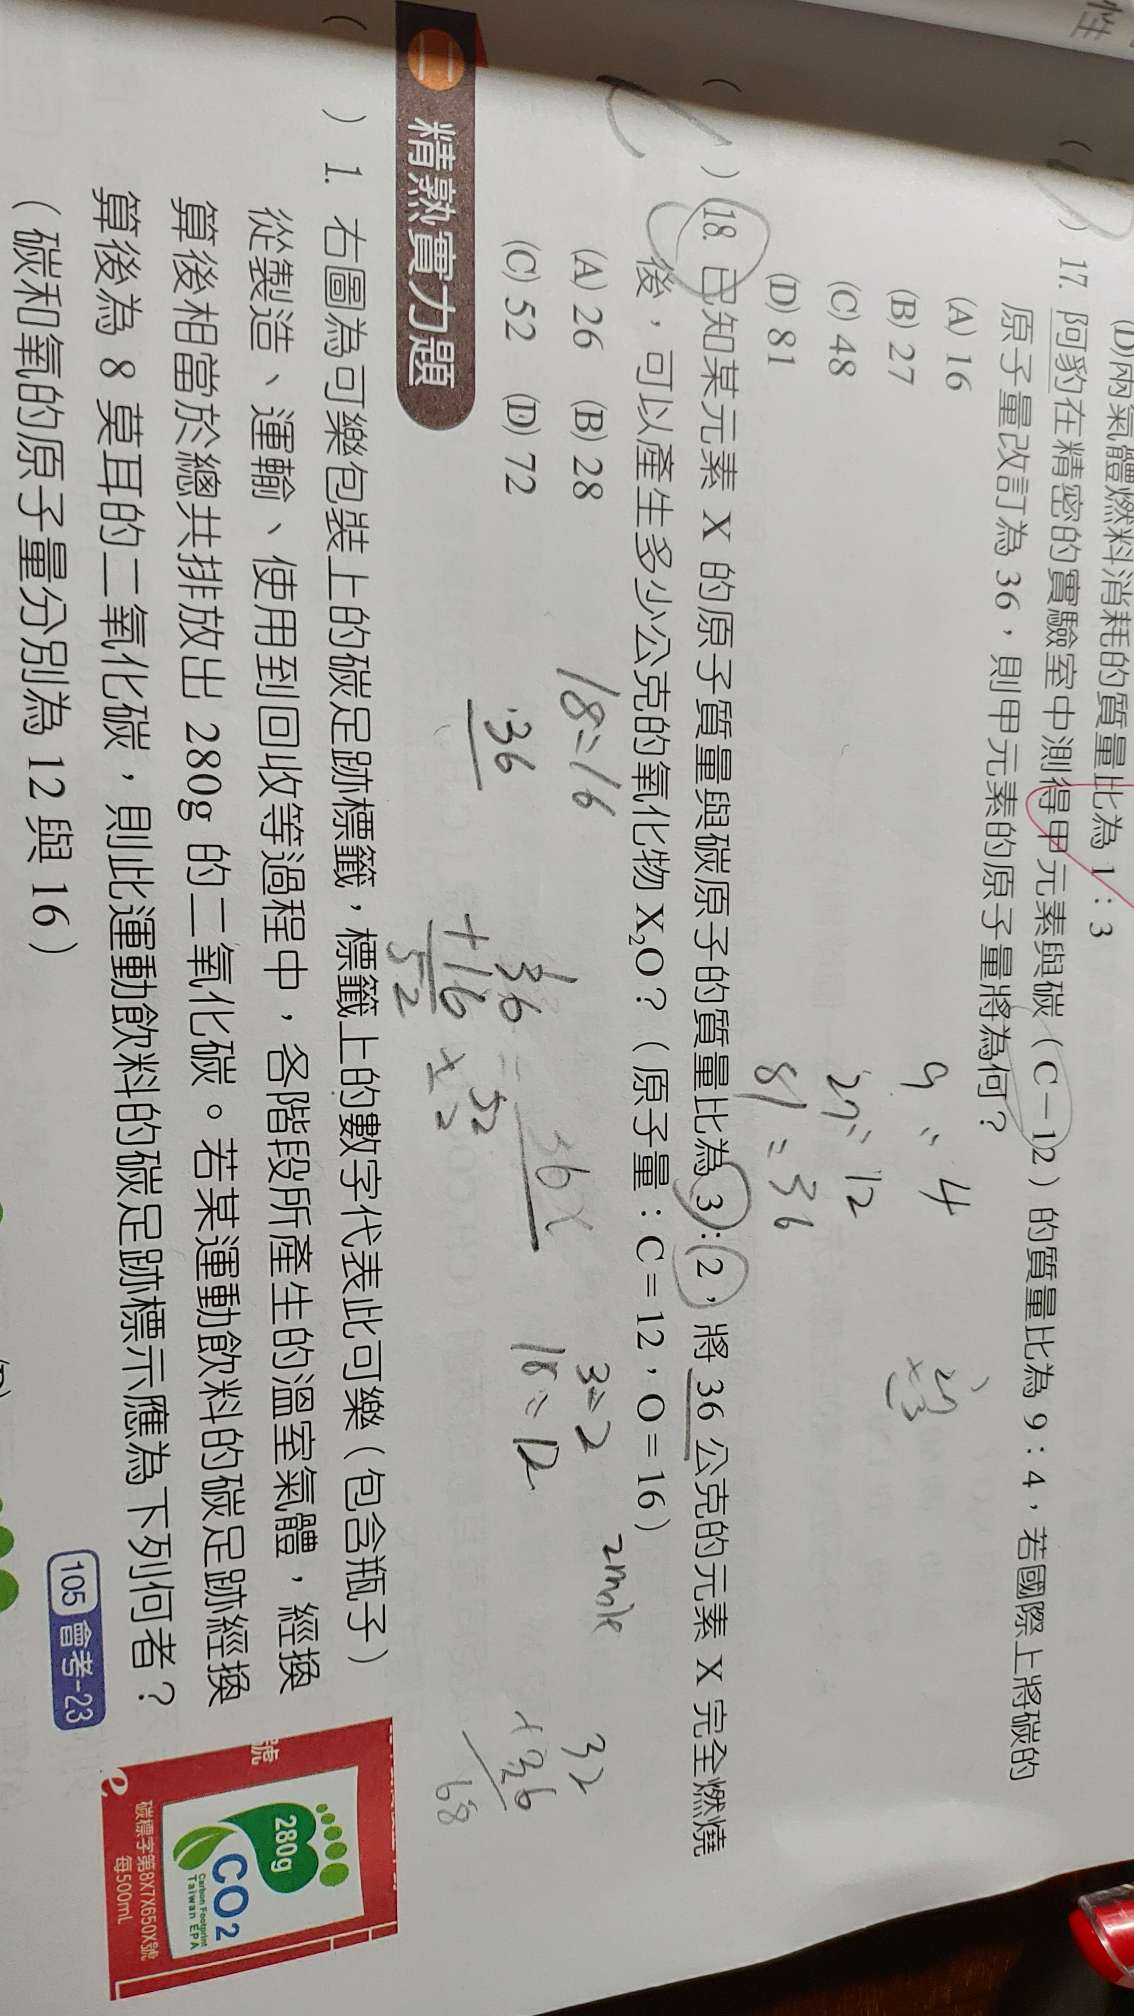 性
(D)兩氣體燃料消耗的質量比為 1:3
( ) 17. 阿豹在精密的實驗室中測得甲元素與碳(C-12)的質量比為 9:4,若國際上將碳的
原子量改訂為 36,則甲元素的原子量將為何?
(A) 16
(B) 27
(C) 48
(D) 81
9 = 4
27 = 12
81 = 36
27
×3
( ) 18. 已知某元素 X 的原子質量與碳原子的質量比為 3:2,將 36 公克的元素 X 完全燃燒
後,可以產生多少公克的氧化物 X₂O?(原子量:C=12,O=16)
(A) 26 (B) 28
(C) 52 (D) 72
18=16
36
36
+16
52
=
52
×2
36X
3=2
18=12
2mole
32
+36
68
二 精熟實力題
( ) 1. 右圖為可樂包裝上的碳足跡標籤,標籤上的數字代表此可樂(包含瓶子)
從製造、運輸、使用到回收等過程中,各階段所產生的溫室氣體,經換
算後相當於總共排放出 280g 的二氧化碳。若某運動飲料的碳足跡經換
算後為 8 莫耳的二氧化碳,則此運動飲料的碳足跡標示應為下列何者?
(碳和氧的原子量分別為 12 與 16)
105 會考-23
號
280g
CO2
Carbon Footprint
Taiwan EPA
e
碳標字第8X7X650X號
每500mL